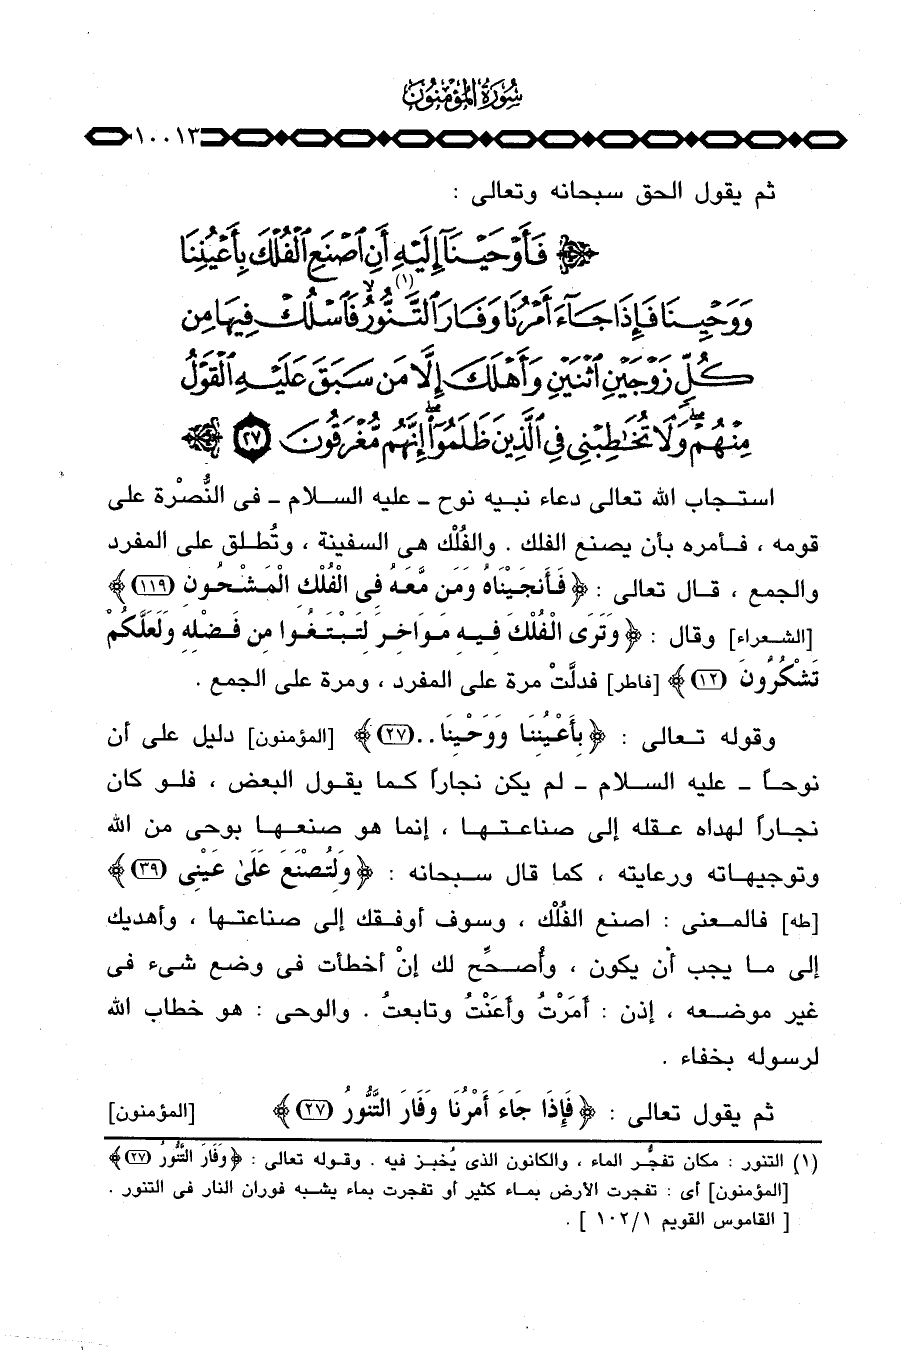 سُورَةُ المُؤْمِنُونَ
١٠٠١٣
ثم يقول الحق سبحانه وتعالى :
﴿ فَأَوْحَيْنَآ إِلَيْهِ أَنِ ٱصْنَعِ ٱلْفُلْكَ بِأَعْيُنِنَا
وَوَحْيِنَا فَإِذَا جَآءَ أَمْرُنَا وَفَارَ ٱلتَّنُّورُ(١) ۙ فَٱسْلُكْ فِيهَا مِن
كُلٍّ زَوْجَيْنِ ٱثْنَيْنِ وَأَهْلَكَ إِلَّا مَن سَبَقَ عَلَيْهِ ٱلْقَوْلُ
مِنْهُمْ ۖ وَلَا تُخَٰطِبْنِى فِى ٱلَّذِينَ ظَلَمُوٓا۟ ۖ إِنَّهُم مُّغْرَقُونَ ٢٧ ﴾
استجاب الله تعالى دعاء نبيه نوح - عليه السلام - فى النُّصْرة على
قومه ، فأمره بأن يصنع الفلك . والفُلْك هى السفينة ، وتُطلق على المفرد
والجمع ، قال تعالى : ﴿ فَأَنجَيْنَاهُ وَمَن مَّعَهُ فِى الْفُلْكِ الْمَشْحُونِ (١١٩) ﴾
[الشعراء] وقال : ﴿ وَتَرَى الْفُلْكَ فِيهِ مَوَاخِرَ لِتَبْتَغُوا مِن فَضْلِهِ وَلَعَلَّكُمْ
تَشْكُرُونَ (١٢) ﴾ [فاطر] فدلَّتْ مرة على المفرد ، ومرة على الجمع .
وقوله تعالى : ﴿ بِأَعْيُنِنَا وَوَحْيِنَا .. (٢٧) ﴾ [المؤمنون] دليل على أن
نوحاً - عليه السلام - لم يكن نجاراً كما يقول البعض ، فلو كان
نجاراً لهداه عقله إلى صناعتها ، إنما هو صنعها بوحى من الله
وتوجيهاته ورعايته ، كما قال سبحانه : ﴿ وَلِتُصْنَعَ عَلَىٰ عَيْنِى (٣٩) ﴾
[طه] فالمعنى : اصنع الفُلْك ، وسوف أوفقك إلى صناعتها ، وأهديك
إلى ما يجب أن يكون ، وأُصحِّح لك إنْ أخطأت فى وضع شىء فى
غير موضعه ، إذن : أمَرْتُ وأعَنْتُ وتابعتُ . والوحى : هو خطاب الله
لرسوله بخفاء .
ثم يقول تعالى : ﴿ فَإِذَا جَاءَ أَمْرُنَا وَفَارَ التَّنُّورُ (٢٧) ﴾ [المؤمنون]
(١) التنور : مكان تفجُّر الماء ، والكانون الذى يُخبز فيه . وقوله تعالى : ﴿ وَفَارَ التَّنُّورُ (٢٧) ﴾
[المؤمنون] أى : تفجرت الأرض بماء كثير أو تفجرت بماء يشبه فوران النار فى التنور .
[ القاموس القويم ١٠٢/١ ] .